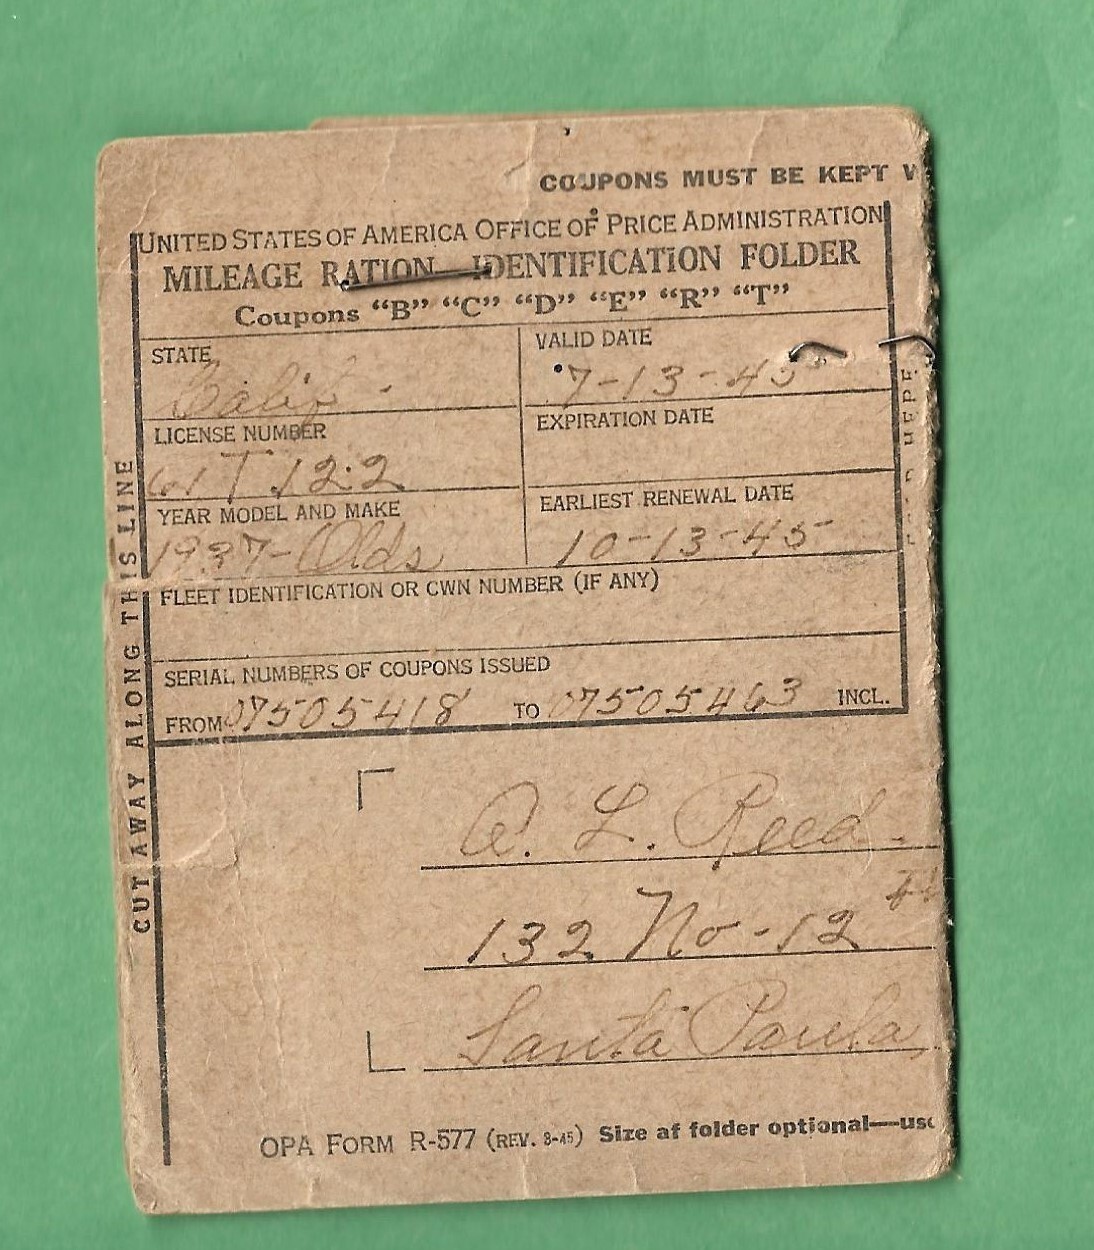 COUPONS MUST BE KEPT W
UNITED STATES OF AMERICA OFFICE OF PRICE ADMINISTRATION
MILEAGE RATION—IDENTIFICATION FOLDER
Coupons “B” “C” “D” “E” “R” “T”
STATE
Calif.
VALID DATE
7-13-45
LICENSE NUMBER
61T 122
EXPIRATION DATE
YEAR MODEL AND MAKE
1937-Olds
EARLIEST RENEWAL DATE
10-13-45
FLEET IDENTIFICATION OR CWN NUMBER (IF ANY)
SERIAL NUMBERS OF COUPONS ISSUED
FROM 07505418 TO 07505463 INCL.
CUT AWAY ALONG THIS LINE
L. Reed.
132 No-12
Santa Paula,
OPA FORM R-577 (REV. 3-45) Size af folder optional—use